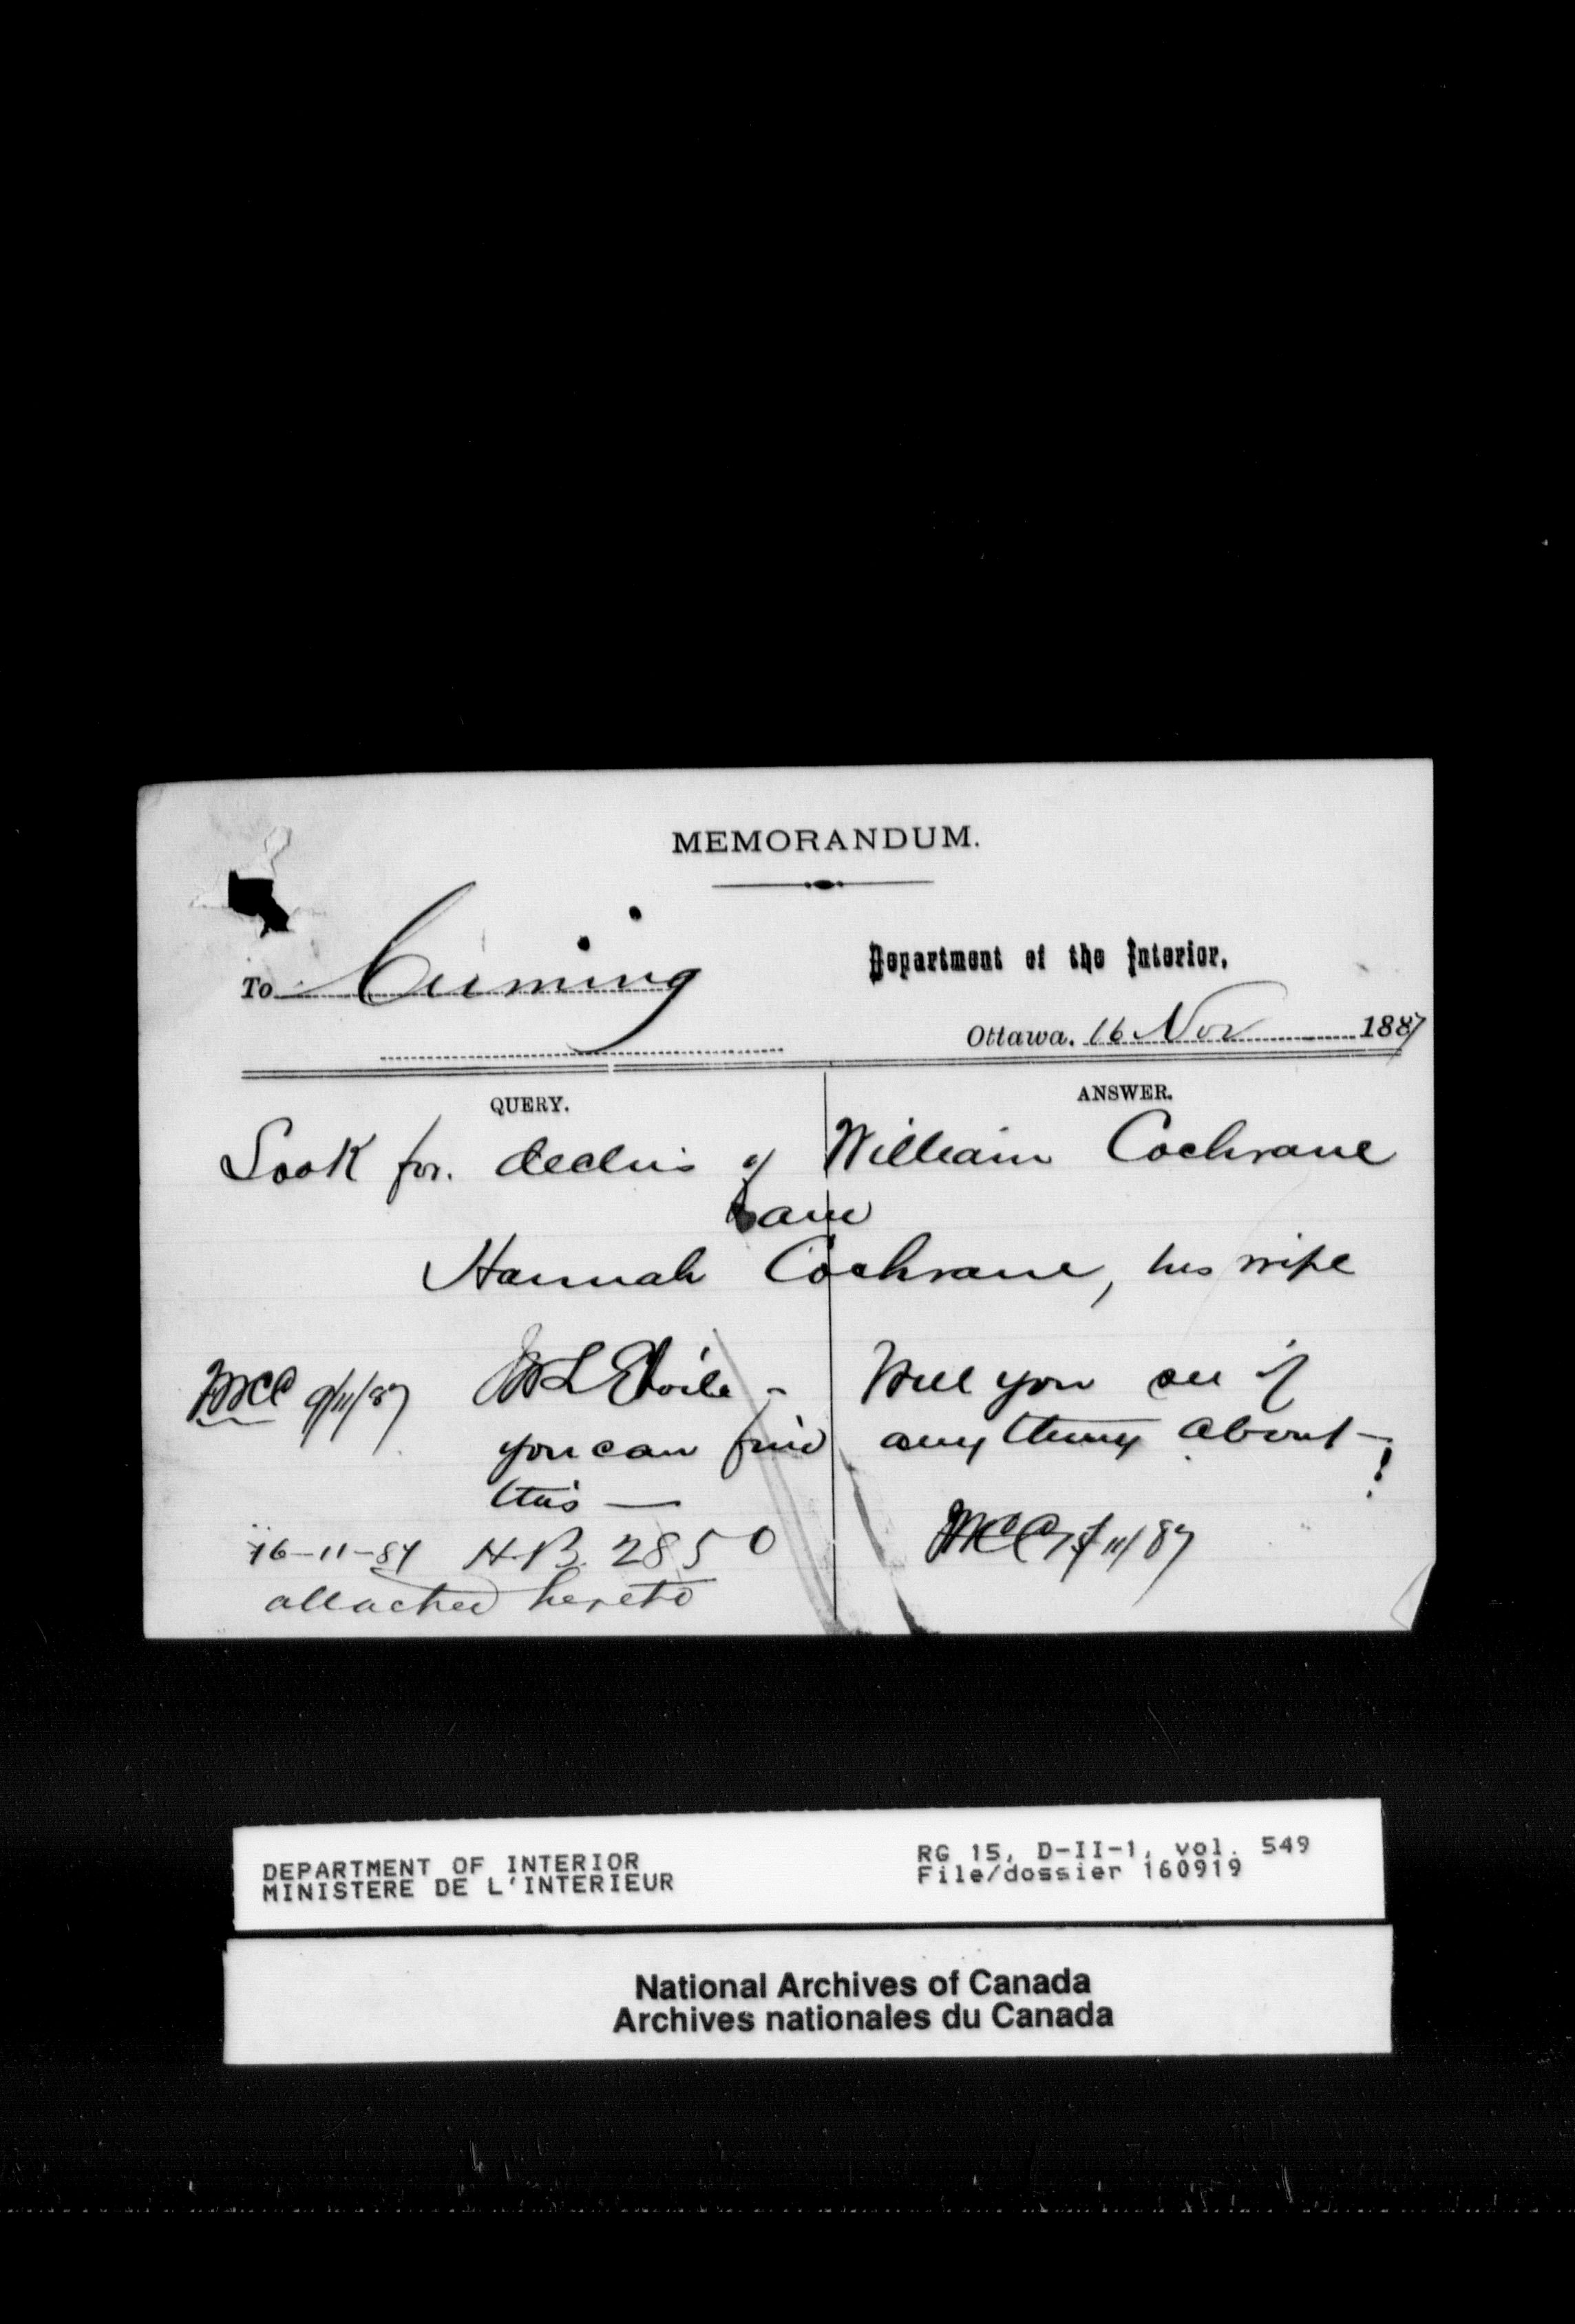 MEMORANDUM.
To Cuming
Department of the Interior,
Ottawa. 16 Nov 1887
QUERY. ANSWER.
Look for. declns of William Cochrane
and
Hannah Cochrane, his wife
McC 9/11/87 Mr L'Etoile - Will you see if
you can find anything about
this — !
McC 11/87
16-11-87 H.B. 2850
attached hereto
DEPARTMENT OF INTERIOR
MINISTERE DE L'INTERIEUR
RG 15, D-II-1, vol. 549
File/dossier 160919
National Archives of Canada
Archives nationales du Canada